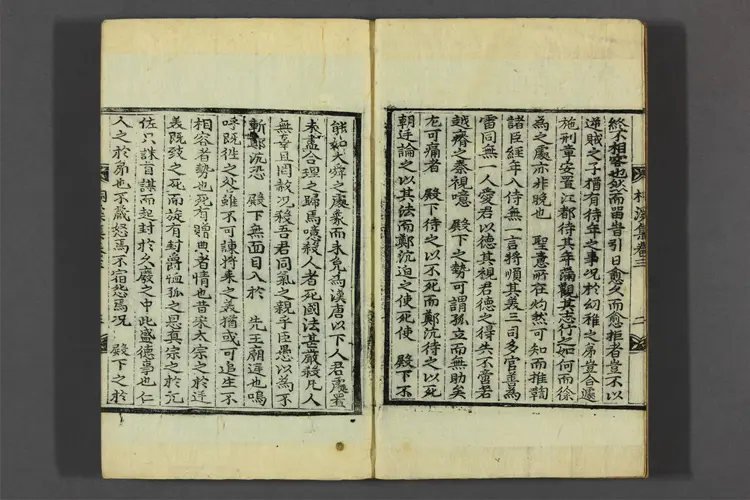 終不相容也欤而留眥引日愈久而愈拒者豈不以
逆賊之子猶有待年之事况於幼稚之弟豈合遽
施刑章安置江都待其年滿觀其志行之如何而徐
爲之處亦非晩也 聖意所在灼然可知而推鞫
諸臣經年入侍無一言將順其美三司多官善爲
雷同無一人愛君以德其視君德之得失不啻若
越瘠之秦視噫 殿下之勢可謂孤立而無助矣
尤可痛者 殿下待之以不死而鄭沆待之以死
朝廷論之以其法而鄭沆迫之使死使 殿下不
能如大舜之處象而未免爲漢唐以下人君處置
未盡合理之歸焉噫殺人者死國法甚嚴殺凡人
無辜且罔敢况殺吾君同氣之親乎臣愚以爲不
斬鄭沆恐 殿下無面目入於 先王廟庭也嗚
呼旣往之失雖不可諫將來之義猶或可追生不
相容者勢也死有贈典者情也昔宋太宗之於廷
美旣致之死而旋有封爵恤孤之恩眞宗之於元
佐只誅首謀而起封於久廢之中此盛德事也仁
人之於弟也不藏怒焉不宿怨焉况 殿下之於